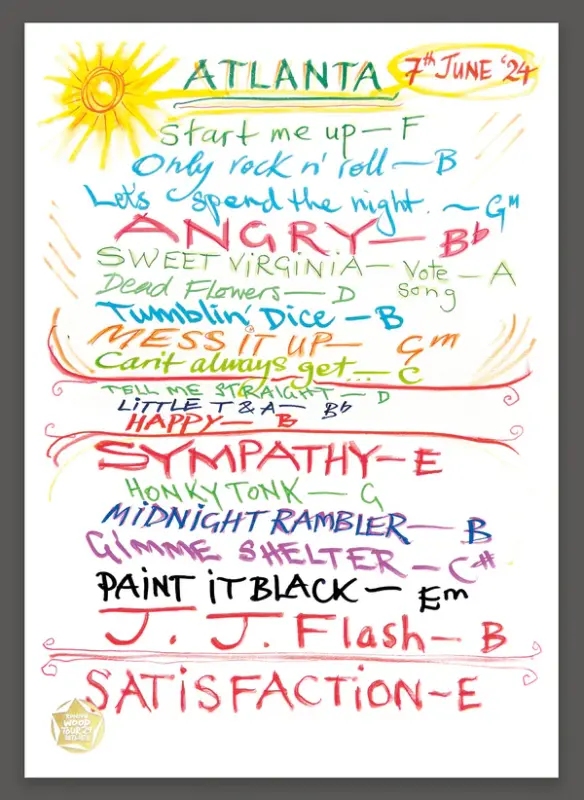 ATLANTA 7th JUNE '24
Start me up — F
Only rock n' roll — B
Let's spend the night. ~ Gm
ANGRY — Bb
SWEET VIRGINIA — Vote song — A
Dead Flowers — D
Tumblin' Dice — B
MESS IT UP — Gm
Can't always get... — C
TELL ME STRAIGHT — D
LITTLE T & A — Bb
HAPPY — B
SYMPATHY — E
HONKY TONK — G
MIDNIGHT RAMBLER — B
GIMME SHELTER — C#
PAINT IT BLACK — Em
J. J. Flash — B
SATISFACTION ~ E
WOOD